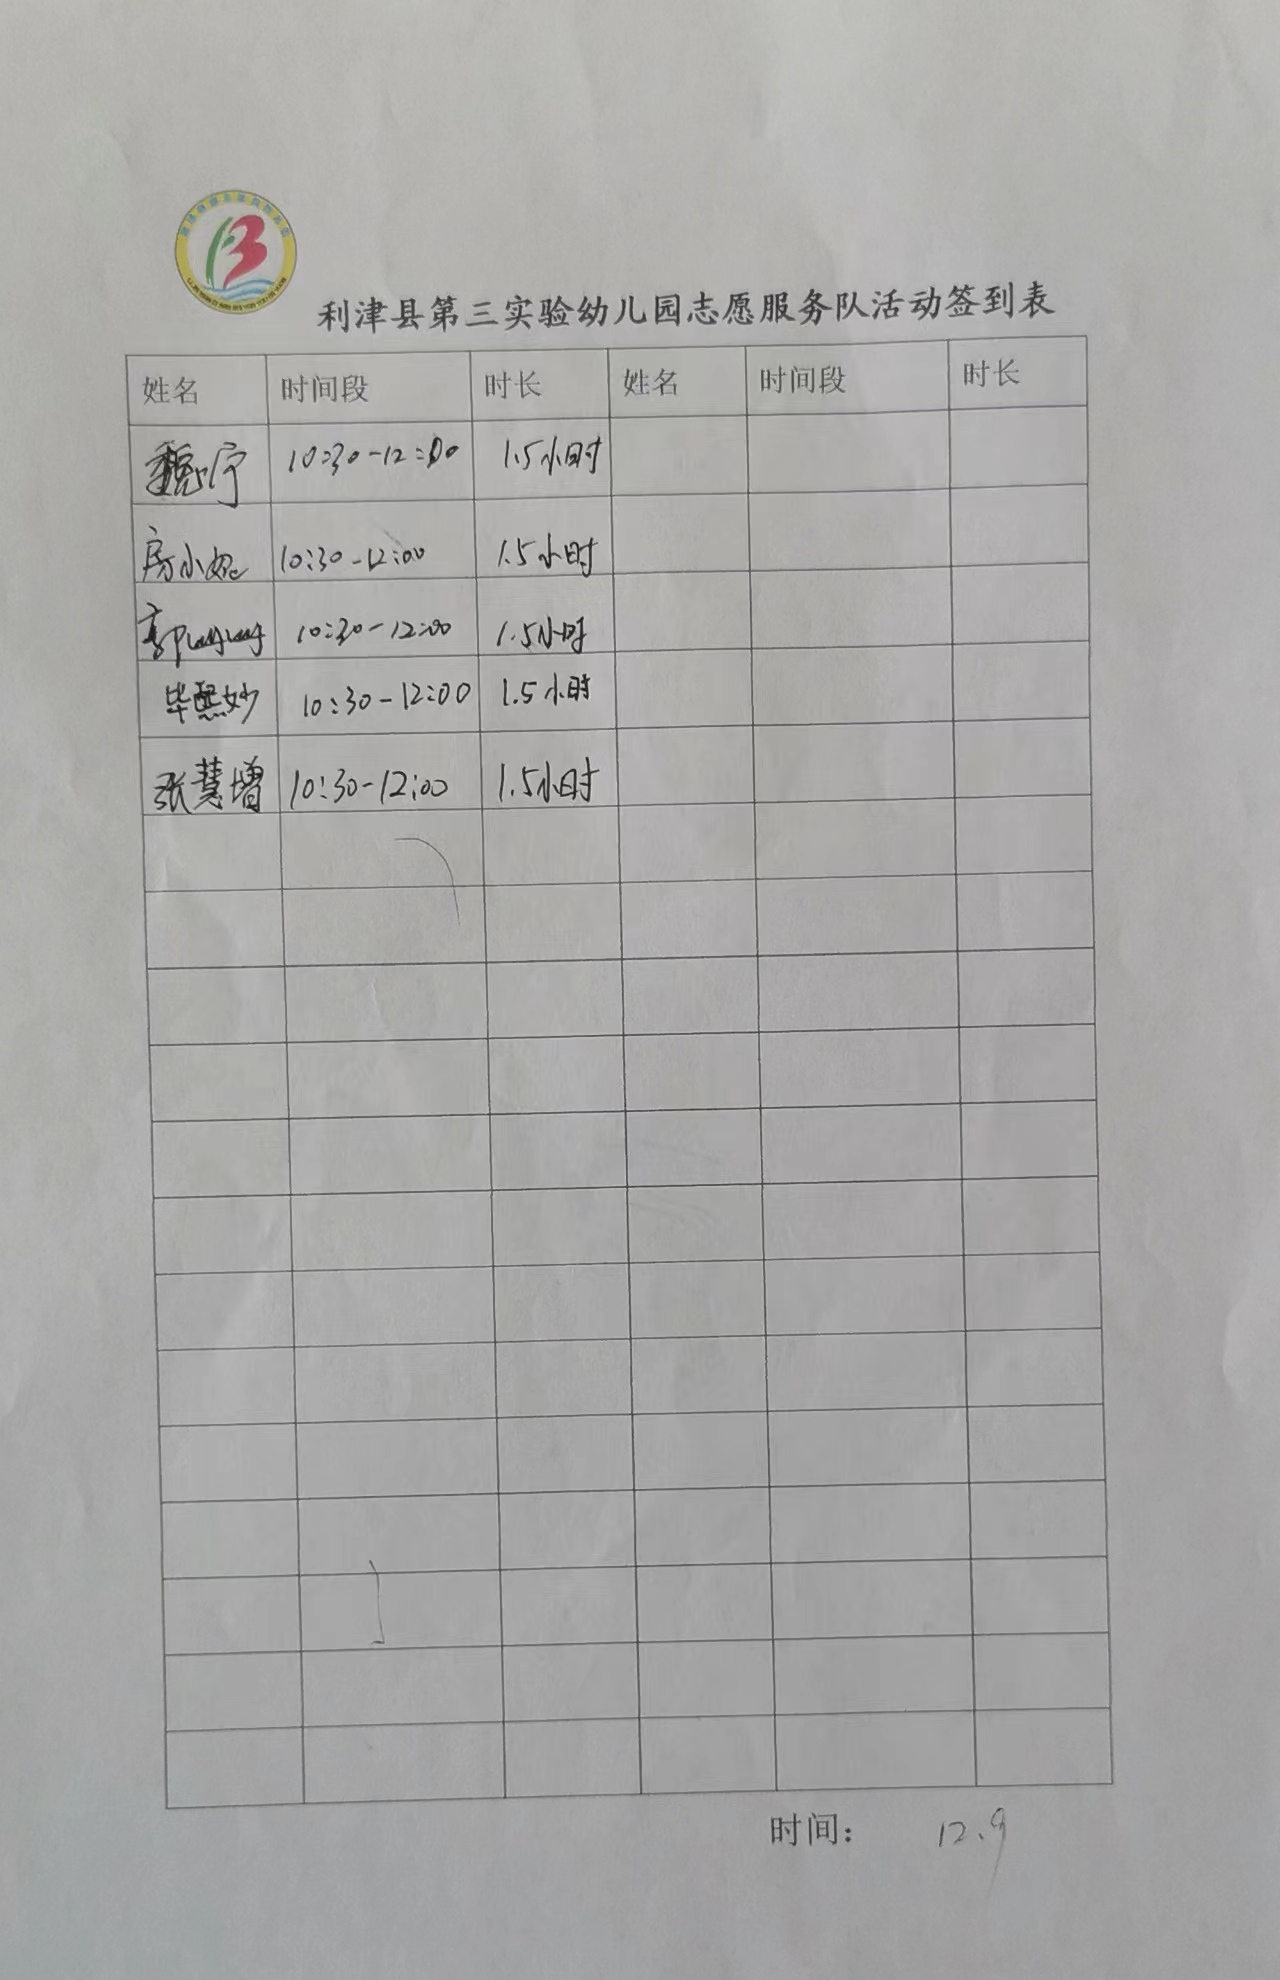 利津县第三实验幼儿园志愿服务队活动签到表
姓名 时间段 时长 姓名 时间段 时长
魏宁 10:30-12:00 1.5小时
房小妮 10:30-12:00 1.5小时
郭 10:30-12:00 1.5小时
毕熙妙 10:30-12:00 1.5小时
张慧增 10:30-12:00 1.5小时
时间： 12.9